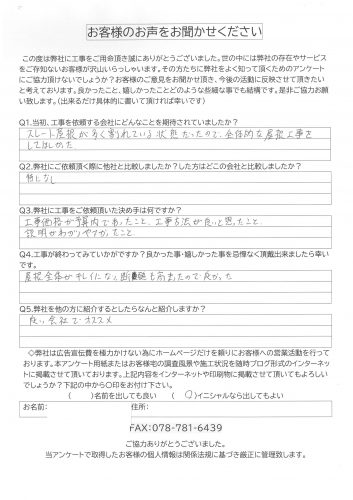 お客様のお声をお聞かせください
この度は弊社に工事をご用命頂き誠にありがとうございました。世の中には弊社の存在やサービス
をご存知ないお客様が沢山いらっしゃいます。その方たちに弊社をよく知って頂くためのアンケート
にご協力頂けないでしょうか？お客様のご意見をお聞かせ頂き、今後の活動に反映させて頂きたい
と考えております。良かったこと、嬉しかったことどのような些細な事でも結構です。是非ご協力お願
い致します。（出来るだけ具体的に書いて頂ければ幸いです）
Q1.当初、工事を依頼する会社にどんなことを期待されていましたか？
スレート屋根が多く割れている状態だったので、全体的な屋根工事を
してほしかった
Q2.弊社にご依頼頂く際に他社と比較しましたか？した方はどこの会社と比較しましたか？
特になし
Q3.弊社に工事をご依頼頂いた決め手は何ですか？
工事価格が予算内であったこと、工事方法が良いと思ったこと、
説明がわかりやすかったこと
Q4.工事が終わってみていかがですか？良かった事・嬉しかった事を忌憚なく頂戴出来ましたら幸
いです。
屋根全体がキレイになり、断熱も高まったので良かった
Q5.弊社を他の方に紹介するとしたらなんと紹介しますか？
良い会社でオススメ
◇弊社は広告宣伝費を極力かけない為にホームページだけを頼りにお客様への営業活動を行って
おります。本アンケート用紙またはお客様宅の調査風景や施工状況を随時ブログ形式のインターネッ
トに掲載させて頂いております。上記内容をインターネットや印刷物に掲載させて頂いてもよろしい
でしょうか？下記の中から〇印をお付け下さい。
（　）名前を出しても良い　（〇）イニシャルなら出してもよい
お名前：　住所：
FAX：078-781-6439
ご協力ありがとうございました。
当アンケートで取得したお客様の個人情報は関係法規に基づき厳正に管理致します。